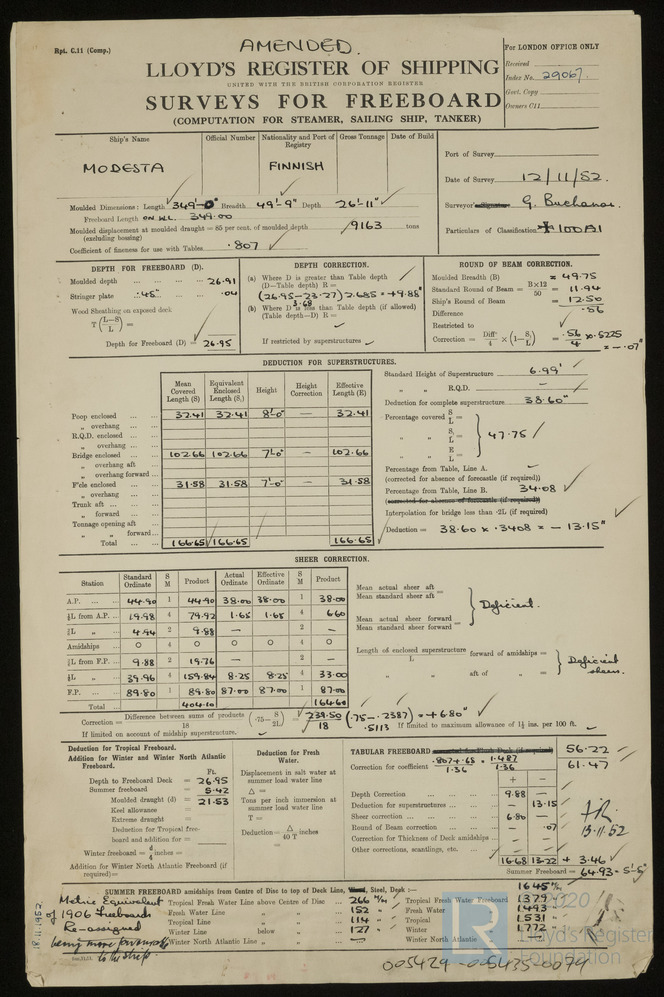 AMENDED.
Rpt. C.11 (Comp.)
For LONDON OFFICE ONLY
LLOYD'S REGISTER OF SHIPPING
Received
UNITED WITH THE BRITISH CORPORATION REGISTER
Index No. 29067
Govt. Copy
SURVEYS FOR FREEBOARD
Owners C11
(COMPUTATION FOR STEAMER, SAILING SHIP, TANKER)
Ship's Name Official Number Nationality and Port of Registry Gross Tonnage Date of Build
MODESTA FINNISH
Port of Survey
Date of Survey 12/11/52.
Surveyor's Signature G. Buchanan.
Particulars of Classification + 100A1
Moulded Dimensions: Length 349'-0" Breadth 49'-9" Depth 26'-11"
Freeboard Length ON W.L. 349.00
Moulded displacement at moulded draught = 85 per cent. of moulded depth 9163 tons
(excluding bossing)
Coefficient of fineness for use with Tables .807
DEPTH FOR FREEBOARD (D).
Moulded depth 26.91
Stringer plate .45" .04
Wood Sheathing on exposed deck
T(L-S/L) =
Depth for Freeboard (D) = 26.95
DEPTH CORRECTION.
(a) Where D is greater than Table depth
(D-Table depth) R =
(26.95-23.27) 2.685 = +9.88"
3.68
(b) Where D is less than Table depth (if allowed)
(Table depth-D) R =
If restricted by superstructures
ROUND OF BEAM CORRECTION.
Moulded Breadth (B) = 49.75
Standard Round of Beam = B×12/50 = 11.94
Ship's Round of Beam = 12.50
Difference .56
Restricted to
Correction = Diff/4 × (1-S₁/L) = .56/4 × .5225
= -.07"
DEDUCTION FOR SUPERSTRUCTURES.
Mean Covered Length (S) Equivalent Enclosed Length (S₁) Height Height Correction Effective Length (E)
Poop enclosed 32.41 32.41 8'-0" — 32.41
„ overhang
R.Q.D. enclosed
„ overhang
Bridge enclosed 102.66 102.66 7'-0" — 102.66
„ overhang aft
„ overhang forward
F'cle enclosed 31.58 31.58 7'-0" — 31.58
„ overhang
Trunk aft
„ forward
Tonnage opening aft
„ „ forward
Total 166.65 166.65 166.65
Standard Height of Superstructure 6.99'
„ „ R.Q.D. —
Deduction for complete superstructure 38.60"
Percentage covered S/L =
„ „ S₁/L = 47.75
„ „ E/L =
Percentage from Table, Line A.
(corrected for absence of forecastle (if required))
Percentage from Table, Line B. 34.08
(corrected for absence of forecastle (if required))
Interpolation for bridge less than ·2L (if required)
Deduction = 38.60 × .3408 = -13.15"
SHEER CORRECTION.
Station Standard Ordinate S M Product Actual Ordinate Effective Ordinate S M Product
A.P. 44.90 1 44.90 38.00 38.00 1 38.00
⅙L from A.P. 19.98 4 79.92 1.65 1.65 4 6.60
⅓L „ 4.94 2 9.88 — 2 —
Amidships 0 4 0 0 0 4 0
⅓L from F.P. 9.88 2 19.76 — 2 —
⅙L „ 39.96 4 159.84 8.25 8.25 4 33.00
F.P. 89.80 1 89.80 87.00 87.00 1 87.00
Total 404.10 164.60
Mean actual sheer aft
Mean standard sheer aft =
Mean actual sheer forward
Mean standard sheer forward =
Deficient.
Length of enclosed superstructure forward of amidships =
L
„ aft of „ =
Deficient sheer.
Correction = Difference between sums of products/18 (·75 - S/2L) = 239.50/18 (.75-.2387) = +6.80"
.5113
If limited on account of midship superstructure.
If limited to maximum allowance of 1½ ins. per 100 ft.
Deduction for Tropical Freeboard.
Addition for Winter and Winter North Atlantic Freeboard.
Ft.
Depth to Freeboard Deck = 26.95
Summer freeboard = 5.42
Moulded draught (d) = 21.53
Keel allowance =
Extreme draught =
Deduction for Tropical freeboard and addition for
Winter freeboard = d/4 inches =
Addition for Winter North Atlantic Freeboard (if required) =
Deduction for Fresh Water.
Displacement in salt water at summer load water line
Δ =
Tons per inch immersion at summer load water line
T =
Deduction = Δ/40 T inches
=
TABULAR FREEBOARD corrected for Flush Deck (if required) 56.22
Correction for coefficient .807+.68/1.36 = 1.487/1.36 61.47
+ -
Depth Correction 9.88 —
Deduction for superstructures — 13.15
Sheer correction 6.80 —
Round of Beam correction — .07
Correction for Thickness of Deck amidships — —
Other corrections, scantlings, etc. — —
16.68 13.22 + 3.46
Summer Freeboard = 64.93 = 5'-5"
13.11.52
SUMMER FREEBOARD amidships from Centre of Disc to top of Deck Line, Wood, Steel, Deck:— 1645 m/m
Metric Equivalent
of 1906 Freeboards
Re-assigned
being more favourable
to the ship.
18.11.1952
Tropical Fresh Water Line above Centre of Disc 266 m/m Tropical Fresh Water Freeboard 1379
Fresh Water Line „ „ 152 „ Fresh Water „ 1493
Tropical Line „ „ 114 „ Tropical „ 1531
Winter Line below „ 127 „ Winter „ 1772
Winter North Atlantic Line „ „ Winter North Atlantic „
© 2020
Lloyd's Register
Foundation
005429-005435-0079